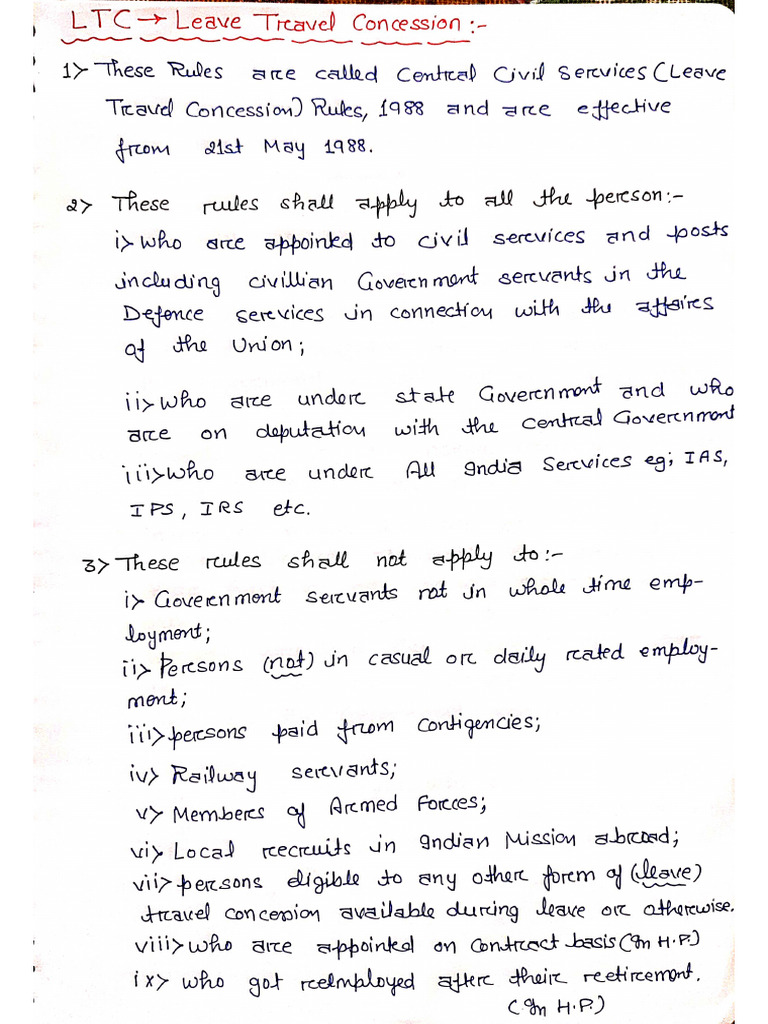 LTC → Leave Travel Concession :-
1> These Rules are called Central Civil Services (Leave
Travel Concession) Rules, 1988 and are effective
from 21st May 1988.
2> These rules shall apply to all the person:-
i> who are appointed to civil services and posts
including civillian Government servants in the
Defence services in connection with the affaires
of the Union;
ii> who are under state Government and who
are on deputation with the Central Government
iii> who are under All India Services eg; IAS,
IPS, IRS etc.
3> These rules shall not apply to:-
i> Government servants not in whole time emp-
loyment;
ii> Persons (not) in casual or daily rated employ-
ment;
iii> persons paid from Contigencies;
iv> Railway servants;
v> Members of Armed Forces;
vi> Local recruits in Indian Mission abroad;
vii> persons eligible to any other form of (leave)
travel concession available during leave or otherwise.
viii> who are appointed on contract basis (In H.P.)
ix> who got reemployed after their reetirement.
(In H.P.)